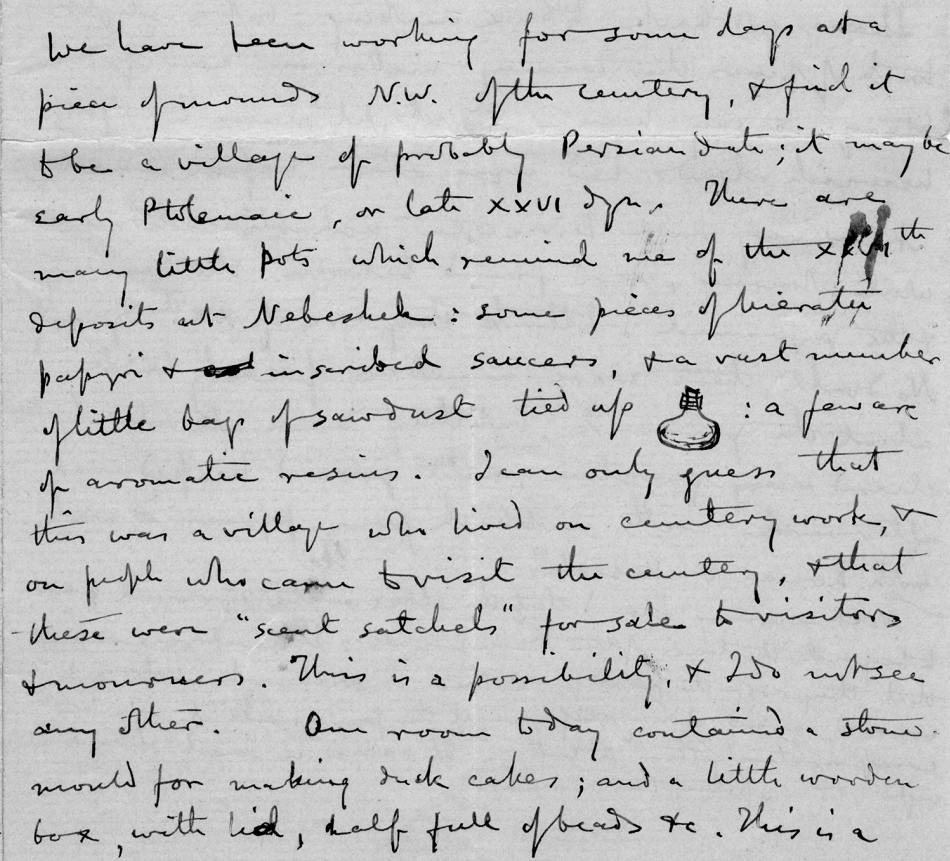 We have been working for some days at a
piece of mounds N.W. of the cemetery, & find it
to be a village of probably Persian date; it may be
early Ptolemaic, or late XXVI dyn. There are
many little pots which remind me of the XXVI th
deposits at Nebesheh: some pieces of hieratic
papyri & inscribed saucers, & a vast number
of little bags of sawdust tied up : a few are
of aromatic resins. I can only guess that
this was a village who lived on cemetery work, &
on people who came to visit the cemetery, & that
these were "scent satchels" for sale to visitors
& mourners. This is a possibility, & I do not see
any other. One room today contained a stone
mould for making duck cakes; and a little wooden
box, with lid, half full of beads &c. This is a